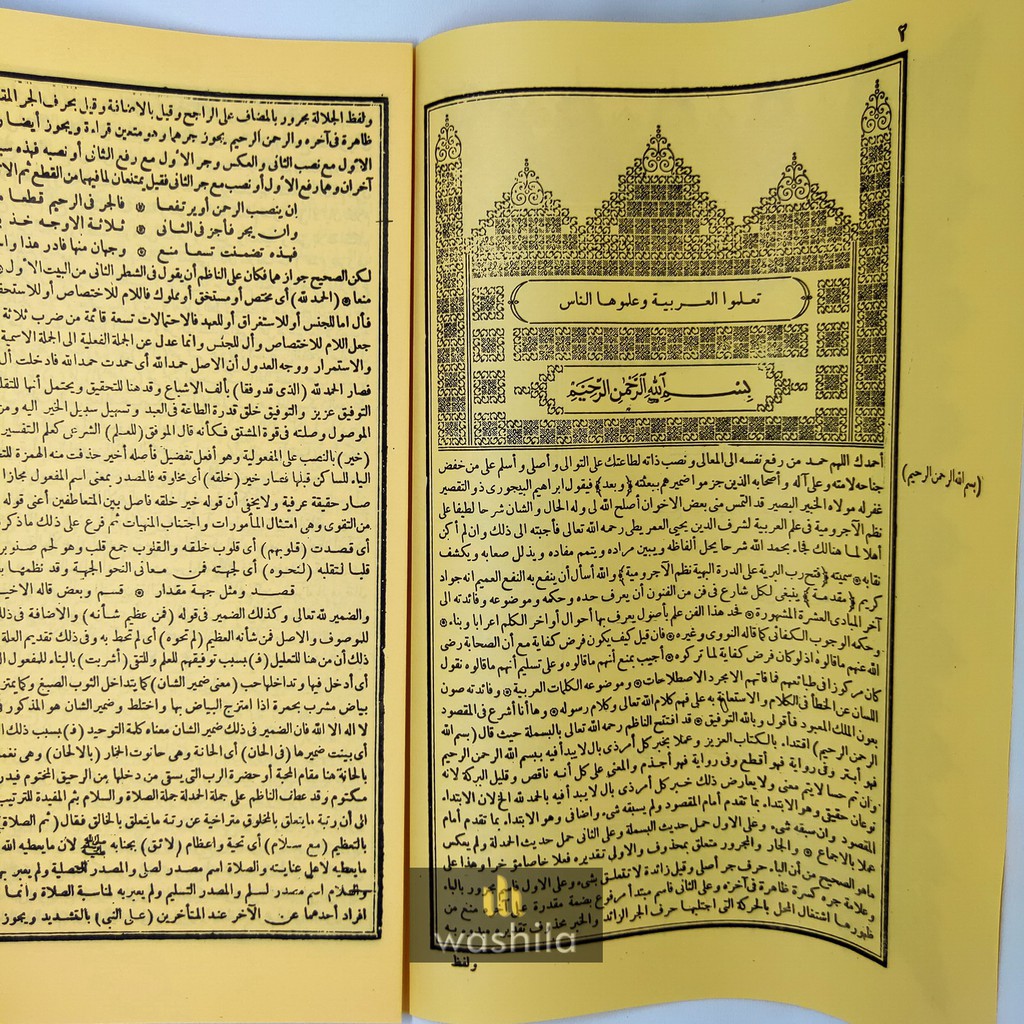 ٢
تعلموا العربية وعلموها الناس
بسم الله الرحمن الرحيم
(بسم الله الرحمن الرحيم)
أحمدك اللهم حمد من رفع نفسه الى المعالى ونصب ذاته لطاعتك على التوالى وأصلى وأسلم على من خفض
جناحه لامته وعلى آله وأصحابه الذين جزموا ضميرهم ببعثته (وبعد) فيقول ابراهيم البيجورى ذو التقصير
غفر له مولاه الخبير البصير قد التمس منى بعض الاخوان أصلح الله لى وله الحال والشان شرحا لطيفا على
نظم الآجرومية فى علم العربية لشرف الدين يحيى العمريطى رحمه الله تعالى فأجبته الى ذلك وان لم أكن
أهلا لما هنالك فجاء بحمد الله شرحا يحل ألفاظه ويبين مراده ويتمم مفاده ويذلل صعابه ويكشف
نقابه * سميته (فتح رب البرية على الدرة البهية نظم الآجرومية) والله أسأل أن ينفع به النفع العميم انه جواد
كريم (مقدمة) ينبغى لكل شارع فى فن من الفنون أن يعرف حده وحكمه وموضوعه وفائدته الى
آخر المبادى العشرة المشهورة * فحد هذا الفن علم بأصول يعرف بها أحوال أواخر الكلم اعرابا وبناء *
وحكمه الوجوب الكفائى كما قاله النووى وغيره * فان قيل كيف يكون فرض كفاية مع أن الصحابة رضى
الله عنهم ماقالوه اذ لو كان فرض كفاية لما تركوه * أجيب بمنع أنهم ماقالوه وعلى تسليم أنهم ماقالوه نقول
كان مركوزا فى طبائعهم فما فاتهم الا مجرد الاصطلاحات * وموضوعه الكلمات العربية * وفائدته صون
اللسان عن الخطأ فى الكلام والاستعانة به على فهم كلام الله تعالى وكلام رسوله * وها أنا أشرع فى المقصود
بعون الملك المعبود فأقول وبالله التوفيق * قد افتتح الناظم رحمه الله تعالى بالبسملة حيث قال (بسم الله
الرحمن الرحيم) اقتداء بالكتاب العزيز وعملا بخبر كل أمر ذى بال لا يبدأ فيه ببسم الله الرحمن الرحيم
فهو أبتر وفى رواية فهو أقطع وفى رواية فهو أجذم والمعنى على كل أنه ناقص وقليل البركة لانه
وان تم حسا لا يتم معنى ولا يعارض ذلك خبر كل أمر ذى بال لا يبدأ فيه بالحمد لله الخ لان الابتداء
نوعان حقيقى وهو الابتداء بما تقدم أمام المقصود ولم يسبقه شىء واضافى وهو الابتداء بما تقدم أمام
المقصود وان سبقه شىء وعلى الاول حمل حديث البسملة وعلى الثانى حمل حديث الحمدلة ولم يعكس
عملا بالاجماع * والجار والمجرور متعلق بمحذوف والاولى تقديره فعلا خاصا مؤخرا وهذا على
ماهو الصحيح من أن الباء حرف جر أصلى وقيل زائدة لا تتعلق بشىء وعلى الاول فاسم مجرور بالباء
وعلامة جره كسرة ظاهرة فى آخره وعلى الثانى فاسم مبتدأ مرفوع بضمة مقدرة على منع من
ظهورها اشتغال المحل بالحركة التى اجتلبها حرف الجر الزائد والخبر محذوف تقديره مبدوء به
ولفظ
ولفظ الجلالة مجرور بالمضاف على الراجح وقيل بالاضافة وقيل بحرف الجر
ظاهرة فى آخره والرحمن الرحيم يجوز جرهما وهو متعين قراءة ويجوز أيضا
الاول مع نصب الثانى والعكس وجر الاول مع رفع الثانى أو نصبه فهذه
آخران وهما رفع الاول أو نصبه مع جر الثانى فقيل يمتنعان لما فيهما من القطع ثم
ان ينصب الرحمن أو يرتفعا * فالجر فى الرحيم قطعا
وان يجر فأجز فى الثانى * ثلاثة الاوجه خذ
فهذه تضمنت تسعا منع * وجهان منها فادر هذا
لكن الصحيح جوازهما فكان على الناظم أن يقول فى الشطر الثانى من البيت الاول *
منعا * (الحمد لله) أى مختص أو مستحق أو مملوك فاللام للاختصاص أو
فأل اما للجنس أو للاستغراق أو للعهد فالاحتمالات تسعة قائمة من ضرب ثلاثة
جعل اللام للاختصاص وأل للجنس وانما عدل عن الجملة الفعلية الى الجملة الاسمية
والاستمرار ووجه العدول أن الاصل حمد الله أى حمدت حمد الله فادخلت
فصار الحمد لله (الذى قد وفقا) بألف الاشباع وقد هنا للتحقيق ويحتمل أنها
التوفيق عزيز والتوفيق خلق قدرة الطاعة فى العبد وتسهيل سبيل الخير اليه
الموصول وصلته فى قوة المشتق فكأنه قال الموفق (للعلم) الشرعى كعلم التفسير
(خير) بالنصب على المفعولية وهو أفعل تفضيل فأصله أخير حذفت منه الهمزة
الياء للساكن قبلها فصار خير (خلقه) أى مخلوقه فالمصدر بمعنى اسم المفعول مجازا
صار حقيقة عرفية ولا يخفى أن قوله خير خلقه فاصل بين المتعاطفين أعنى قوله
من التقوى وهى امتثال المأمورات واجتناب المنهيات ثم فرع على ذلك
أى قصدت (قلوبهم) أى قلوب خلقه والقلوب جمع قلب وهو لحم
قلبا لتقلبه (لنحوه) أى لجهته فمن معانى النحو الجهة وقد نظمها
قصد ومثل جهة مقدار * قسم وبعض قاله
والضمير لله تعالى وكذلك الضمير فى قوله (فمن عظيم شأنه) والاضافة فى
للموصوف والاصل فمن شأنه العظيم (لم تحوه) أى لم تحط به وفى ذلك تقديم العلة
ذلك أن من هنا للتعليل (ف) بسبب توفيقهم للعلم وللتقى (أشربت) بالبناء للمفعول
أى أدخل فيها وتداخلها حب (معنى ضمير الشان) كما يتداخل الثوب الصبغ وكما
بياض مشرب بحمرة اذا امتزج البياض بها واختلط وضمير الشان هو المذكور
لا اله الا الله فان الضمير فى ذلك ضمير الشان معناه كلمة التوحيد (ف) بسبب ذلك
أى بينت ضميرها (فى الحان) أى الحانة وهى حانوت الخمار (بالالحان) وهى
بالحانة هنا مقام المحبة أو حضرة الرب التى يسقى من دخلها من الرحيق المختوم
مكتوم وقد عطف الناظم على جملة الحمدلة جملة الصلاة والسلام بثم المفيدة للترتيب
الى أن رتبة ما يتعلق بالمخلوق متراخية عن رتبة ما يتعلق بالخالق فقال (ثم الصلاة)
بالتعظيم (مع سلام) أى تحية واعظام (لائق) بجنابه ﷺ لان ما يعطيه الله
ما يعطيه لاهل عنايته والصلاة اسم مصدر لصلى والمصدر التصلية ولم يعبر
والسلام اسم مصدر لسلم والمصدر التسليم ولم يعبر به لمناسبة الصلاة وانما
افراد أحدهما عن الآخر عند المتأخرين (على النبى) بالتشديد ويجوز
washila